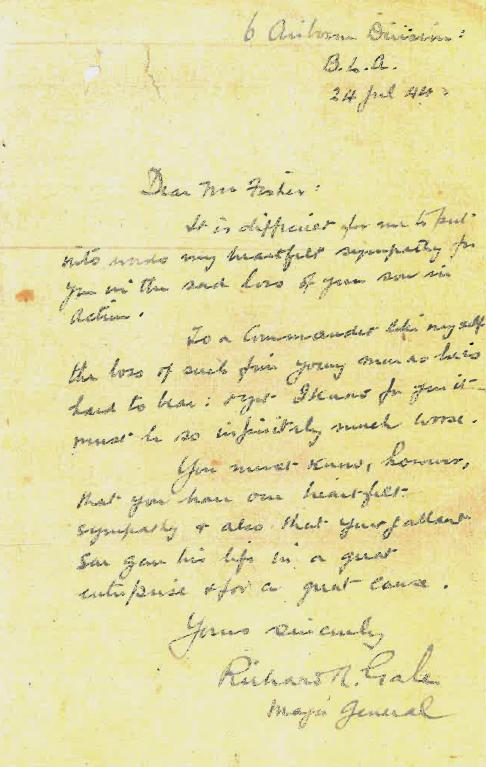 6 Airborne Division:
B.L.A.
24 Jul 44:
Dear Mr Fisher:
It is difficult for me to put
into words my heartfelt sympathy for
you in the sad loss of your son in
action.
To a Commander like myself
the loss of such fine young men as he is
hard to bear: & yet I know for you it
must be so infinitely much worse.
You must know, however,
that you have our heartfelt
sympathy & also that your gallant
son gave his life in a great
enterprise & for a great cause.
Yours sincerely
Richard N. Gale
Major General